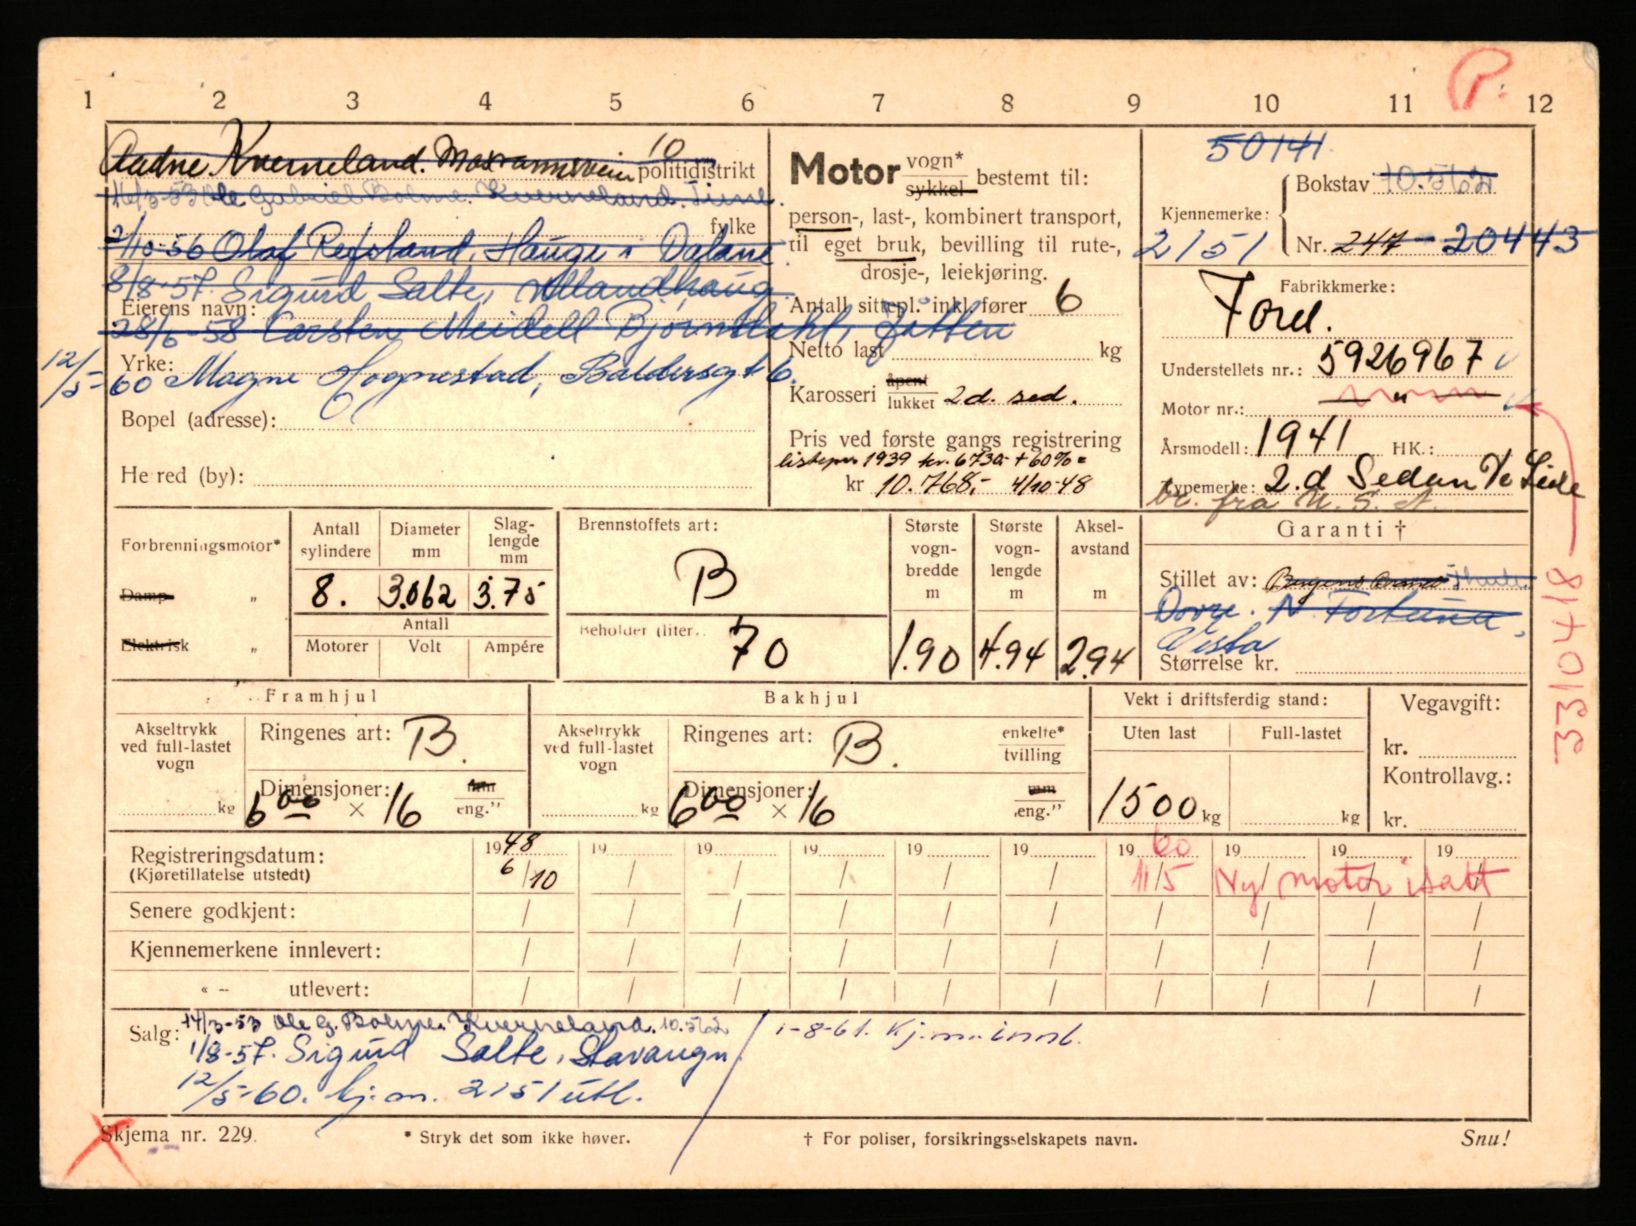 1 2 3 4 5 6 7 8 9 10 11 12
P.
Aadne Kverneland. 10 politidistrikt
16/3-53 Ole Gabriel Bolme. Kverneland. Time.
fylke
2/10-56 Olaf Refsland, Hauge i Dalane
8/8-57. Sigurd Salte, Ullandhaug
Eierens navn:
28/6-58 Carsten Meidell Bjørndahl, Jåtten
Yrke:
12/5-60 Magne Hognestad, Baldersgt 6.
Bopel (adresse):
Herred (by):
Motor vogn* sykkel bestemt til:
person-, last-, kombinert transport,
til eget bruk, bevilling til rute-,
drosje-, leiekjøring.
Antall sittepl. inkl. fører 6
Netto last kg
Karosseri åpent lukket 2d. sed.
Pris ved første gangs registrering
listepris 1939 kr. 6730,- + 60% =
kr 10.768,- 4/10-48
50141.
Bokstav 10.562
Kjennemerke:
2151 Nr. 247 - 20443
Fabrikkmerke:
Ford.
Understellets nr.: 5926967
Motor nr.: — " —
Årsmodell: 1941 HK.:
Typemerke: 2.d Sedan
br. fra U.S.A.
3310418
Forbrenningsmotor*
Damp- "
Elektrisk "
Antall sylindere
8.
Diameter mm
3.062
Slag- lengde mm
3.75
Antall
Motorer Volt Ampére
Brennstoffets art:
B
Beholder (liter):
70
Største vogn- bredde m
1.90
Største vogn- lengde m
4.94
Aksel- avstand m
2.94
Garanti †
Stillet av: Bergens Brand Thule.
Dovre. N. Fortuna,
Vesta
Størrelse kr.
Framhjul
Akseltrykk ved full-lastet vogn
kg
Ringenes art: B.
Dimensjoner: mm
6⁰⁰ × 16 eng."
Bakhjul
Akseltrykk ved full-lastet vogn
kg
Ringenes art: B. enkelte* tvilling
Dimensjoner: mm
6⁰⁰ × 16 eng."
Vekt i driftsferdig stand:
Uten last Full-lastet
1500 kg kg
Vegavgift:
kr.
Kontrollavg.:
kr.
Registreringsdatum: 1948 19 19 19 19 19 1960 19 19 19
(Kjøretillatelse utstedt) 6/10 / / / / / 11/5 Ny motor isatt
Senere godkjent: / / / / / / / / / /
Kjennemerkene innlevert: / / / / / / / / / /
« – utlevert: / / / / / / / / / /
Salg: 14/3-53 Ole G. Bolme. Kverneland. 10.562 1-8-61. Kj.m. innl.
1/8-57. Sigurd Salte, Stavanger.
12/5-60. kj.m. 2151 utl.
Skjema nr. 229.
* Stryk det som ikke høver.
† For poliser, forsikringsselskapets navn.
Snu!